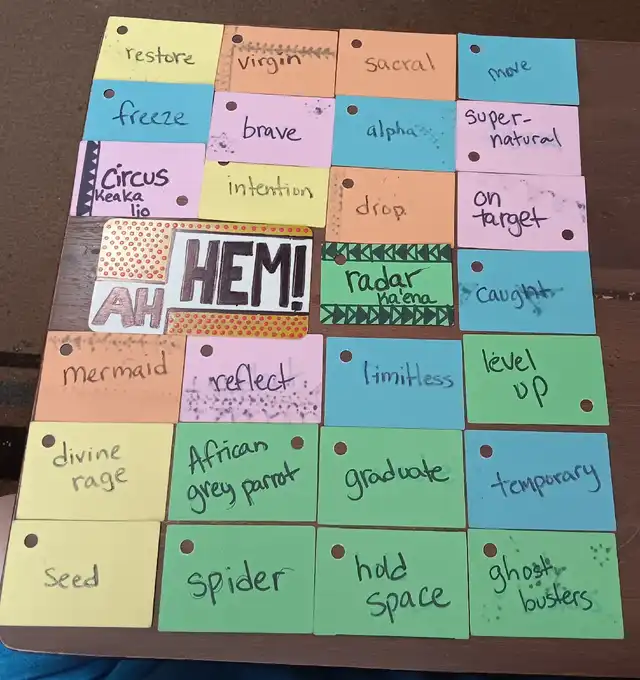 restore
virgin
sacral
move
freeze
brave
alpha
super-
natural
Circus
Keaka
lio
intention
drop
on
target
AH
HEM!
radar
Ka'ena
caught
mermaid
reflect
limitless
level
up
divine
rage
African
grey parrot
graduate
temporary
seed
spider
hold
space
ghost
busters